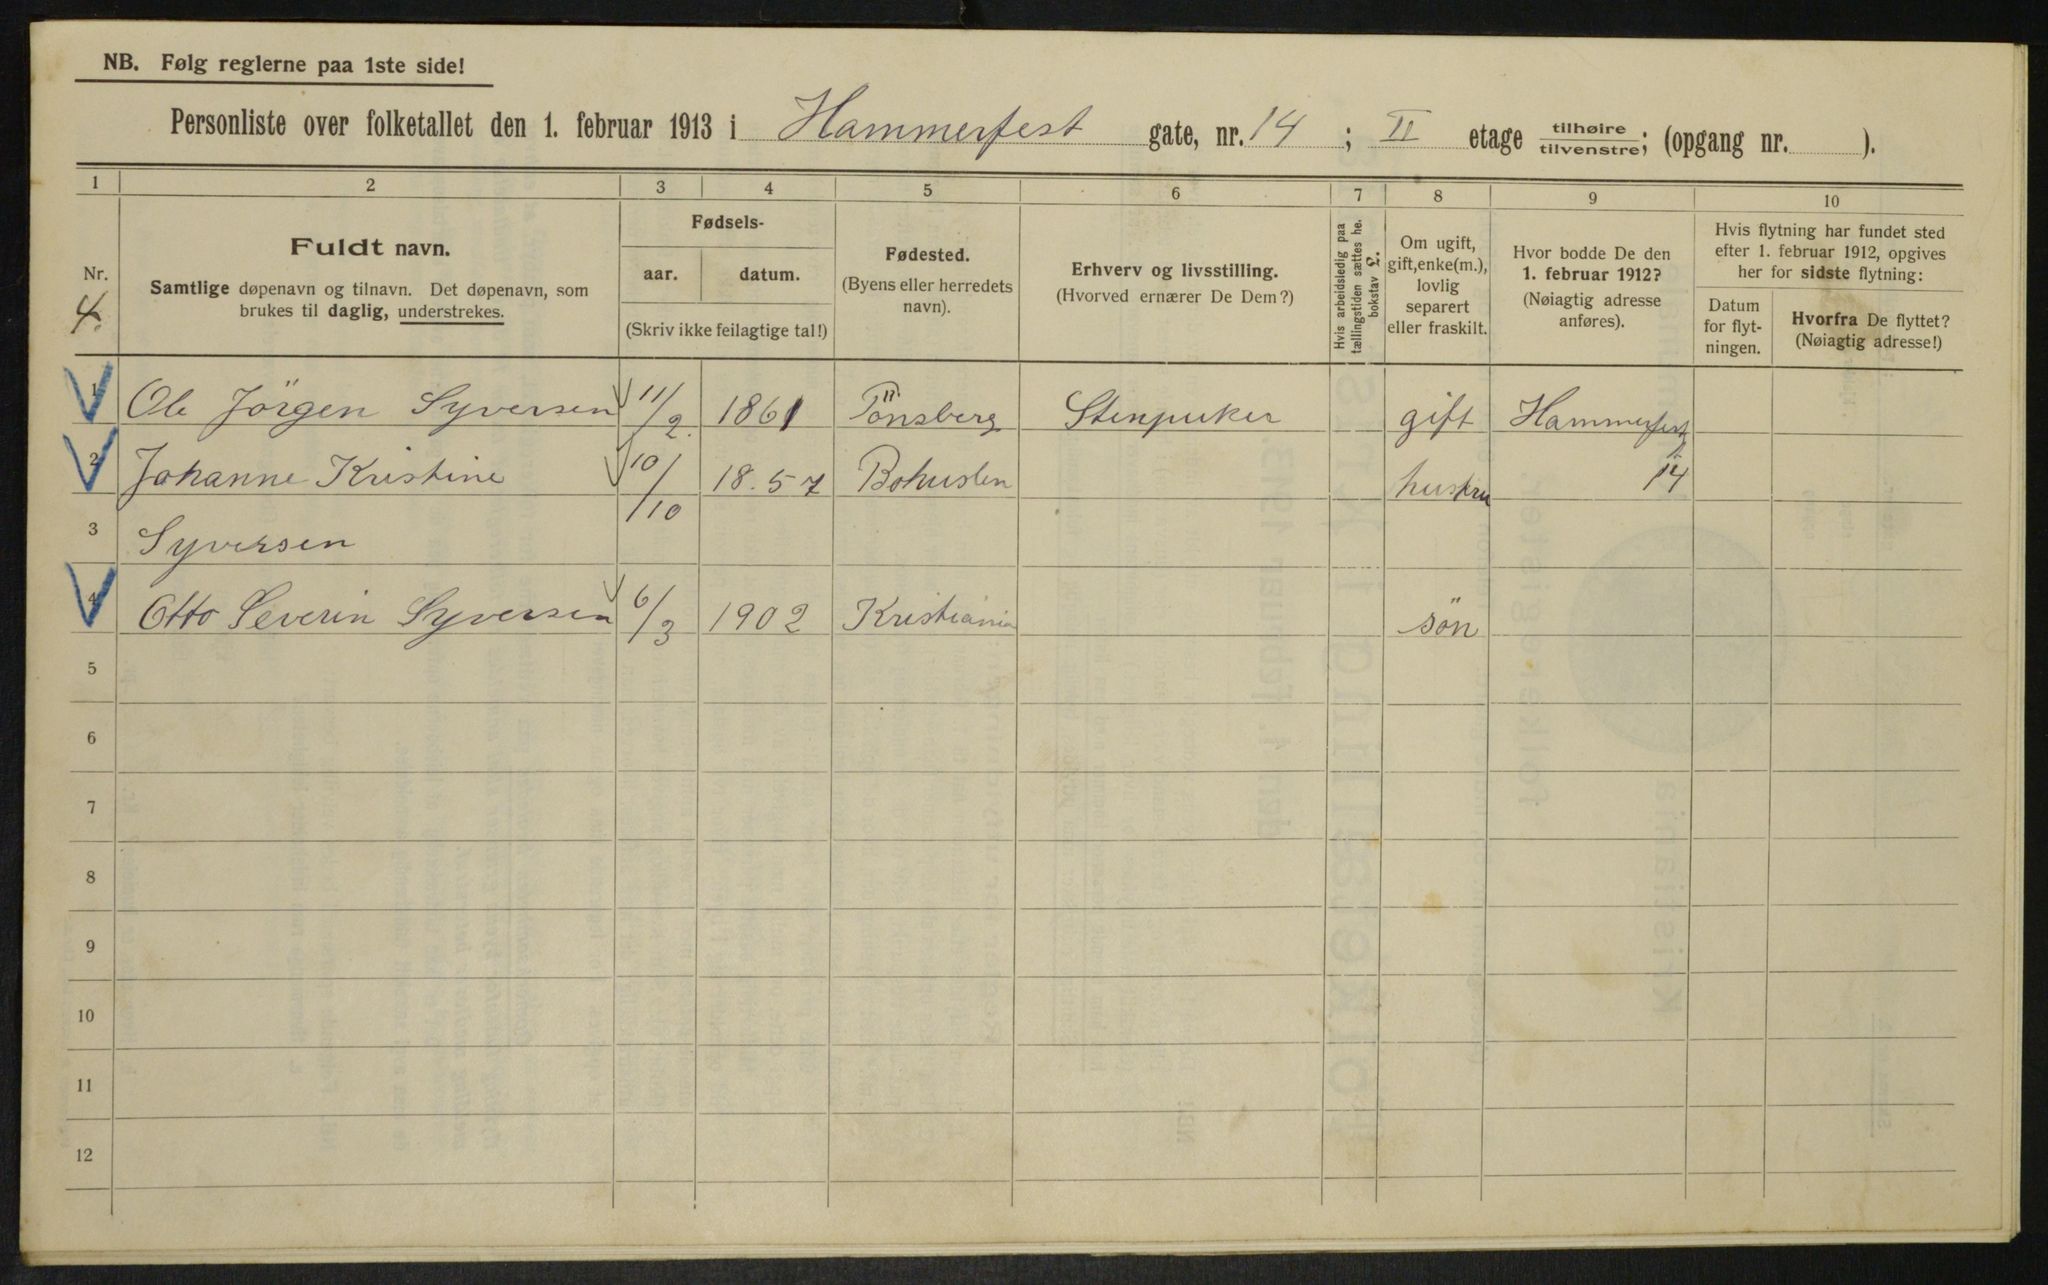 NB. Følg reglerne paa 1ste side!
Personliste over folketallet den 1. februar 1913 i Hammerfest gate, nr. 14 ; II etage tilhøire tilvenstre; (opgang nr. ).
1 2 3 4 5 6 7 8 9 10
Nr.
4.
Fuldt navn.
Samtlige døpenavn og tilnavn. Det døpenavn, som
brukes til daglig, understrekes.
Fødsels-
aar. datum.
(Skriv ikke feilagtige tal!)
Fødested.
(Byens eller herredets
navn).
Erhverv og livsstilling.
(Hvorved ernærer De Dem?)
Hvis arbeidsledig paa
tællingstiden sættes he.
bokstav L.
Om ugift,
gift, enke(m.),
lovlig
separert
eller fraskilt.
Hvor bodde De den
1. februar 1912?
(Nøiagtig adresse
anføres).
Hvis flytning har fundet sted
efter 1. februar 1912, opgives
her for sidste flytning:
Datum
for flyt-
ningen.
Hvorfra De flyttet?
(Nøiagtig adresse!)
1 Ole Jörgen Syversen 11/2. 1861 Tönsberg Stenpuker gift Hammerfest
2 Johanne Kristine 10/10 18.57 Bohuslen hustru 14
3 Syversen
4 Otto Severin Syversen 6/3 1902 Kristiania sön
5
6
7
8
9
10
11
12